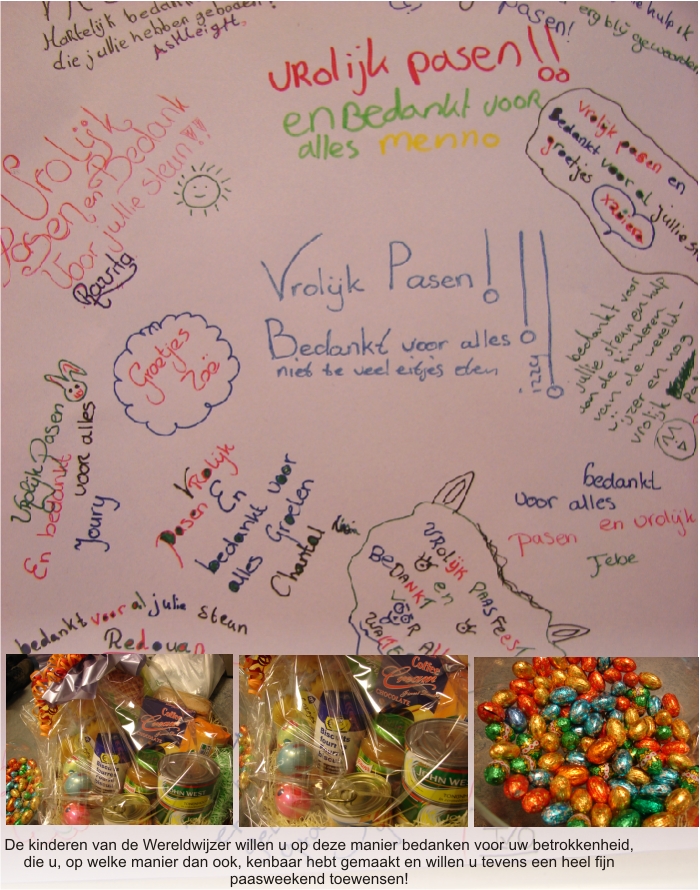 Hartelijk bedan
die jullie hebben geboden!
Ashleigh.
pasen!
hulp ik
erg blij geworden
VROLIJK PASEN!!
en Bedankt voor
alles menno
Vrolijk
Pasen en Bedank
Voor jullie steun!!!
Rowita
Vrolijk pasen en
Bedankt voor al jullie st
groetjes
Xaviera
Vrolijk Pasen!!!
Bedankt voor alles
niet te veel eitjes eten
izzy
bedankt voor
jullie steun en hulp
aan de kinderen
van de wereld-
wijzer en nog
vrolijk
Groetjes
Zoë
Vrolijk Pasen
En bedankt
voor alles
Joury
Vrolijk
Pasen En
bedankt voor
alles Groeten
Chantal
bedankt
voor alles
en vrolijk
pasen
Jelbe
VROLIJK PAASFEEST
en
BEDANKT
VOOR AL
bedankt voor al julie steun
Redouan
Côte d'Or
CHOCOLATE
Biscuits
Fourr
JOHN WEST
De kinderen van de Wereldwijzer willen u op deze manier bedanken voor uw betrokkenheid,
die u, op welke manier dan ook, kenbaar hebt gemaakt en willen u tevens een heel fijn
paasweekend toewensen!